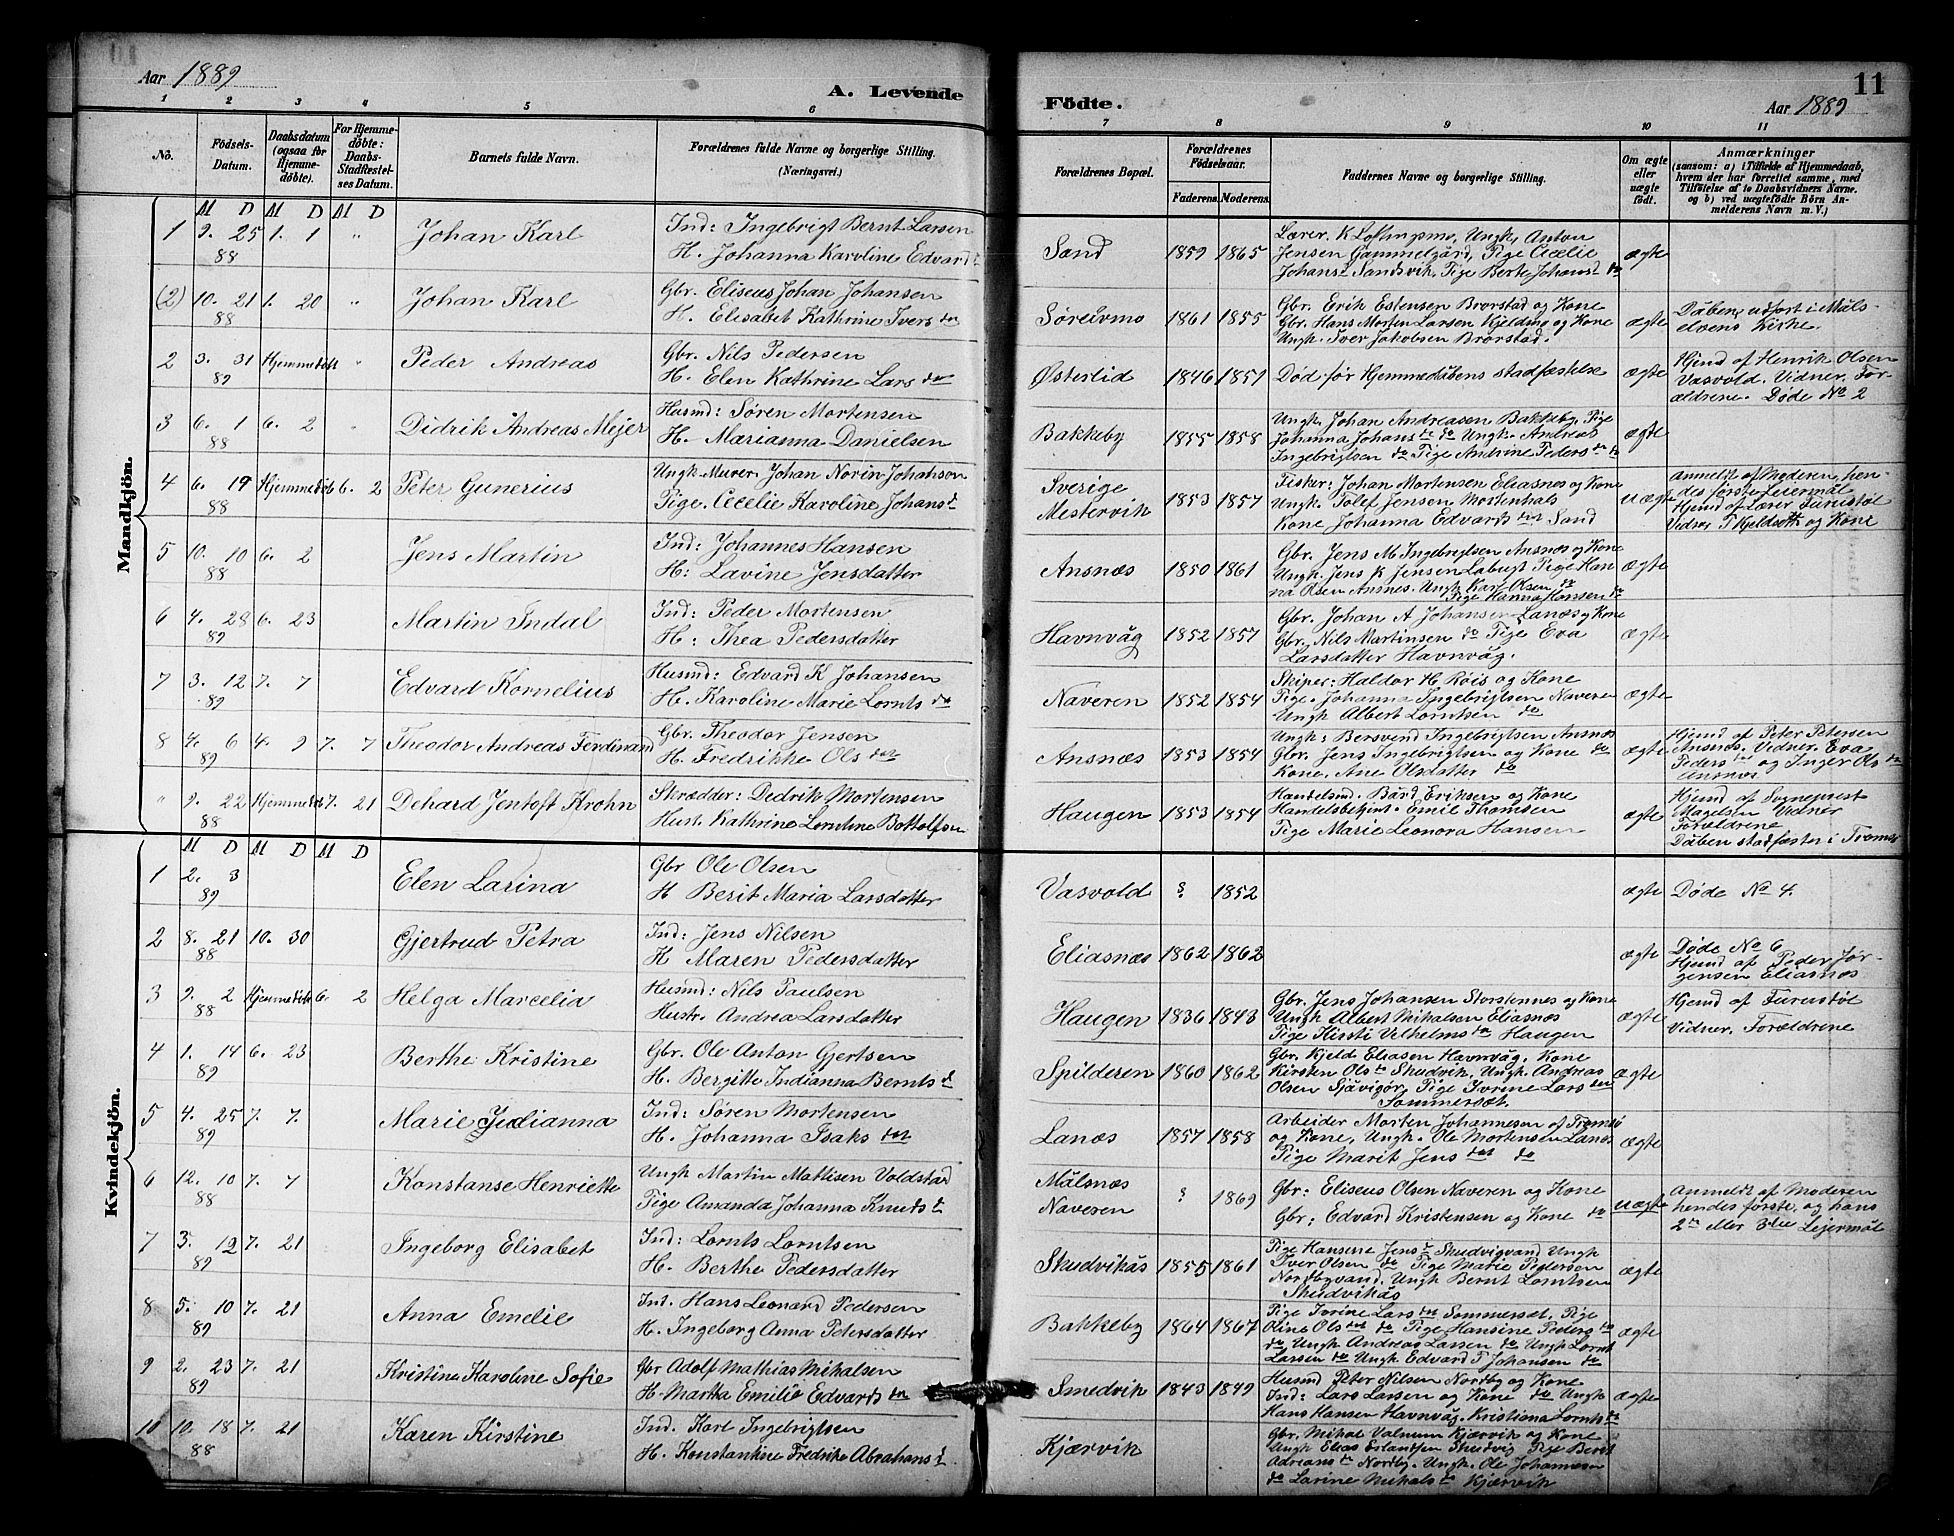 Aar 1889
A. Levende
Födte.
11
Aar 1889
1 2 3 4 5 6 7 8 9 10 11
No.
Födsels-Datum.
Daabsdatum (ogsaa for Hjemme-döbte).
For Hjemme-döbte: Daabs-Stadfæstel-ses Datum.
Barnets fulde Navn.
Forældrenes fulde Navne og borgerlige Stilling. (Næringsvei.)
Forældrenes Bopæl.
Forældrenes Födselsaar.
Faderens. Moderens.
Faddernes Navne og borgerlige Stilling.
Om ægte eller uægte födt.
Anmærkninger
(saasom: a) i Tilfælde af Hjemmedaab, hvem der har forrettet samme, med Tilföielse af to Daabsvidners Navne. og b) ved uægtefödte Börn Anmelderens Navn m. V.)
Mandkjön.
M D M D M D
1 9. 25 88 1. 1 " Johan Karl
Ind: Ingebrigt Bernt Larsen
H. Johanna Karoline Edvard d
Sand 1859 1865
Lærer. K Loftingsmo, Ungk, Anton
Jensen Gammelgård, Pige Cecelie
Johans d Sandsvik, Pige Berte Johans d do
ægte
(2) 10. 21 88 1. 20 " Johan Karl
Gbr. Eliseus Johan Johansen
H. Elisabet Kathrine Ivers dtr
Søreivmo 1861 1855
Gbr. Erik Estensen Brorstad og Kone
Gbr. Hans Morten Larsen Kjeldmo og Kone
Ungk. Iver Jakobsen Brorstad.
ægte
Dåben udført i Måls-
elvens Kirke.
2 3. 31 89 Hjemmedøbt " Peder Andreas
Gbr. Nils Pedersen
H. Elen Kathrine Lars dtr
Østerlid 1846 1851
Død før Hjemmedåbens stadfæstelse
ægte
Hjmd af Henrik Olsen
Vasvold. Vidner. For-
ældrene. Døde No 2
3 6. 1 88 6. 2 " Didrik Andreas Mejer
Husmd: Søren Mortensen
H. Marianna Danielsen
Bakkeby 1855 1858
Ungk. Johan Andreasen Bakkeby, Pige
Johanna Johans dtr do Ungk. Andreas
Ingebrigtsen do Pige Andrine Peders dtr do
ægte
4 6. 19 88 Hjemmedøbt 6. 2 Peter Gunerius
Ungk. Murer. Johan Norin Johanson
Pige. Cecelie Karoline Johans d
Sverige
Mestervik
1853 1857
Fisker: Johan Mortensen Eliasnes og Kone
Ungk. Tolef Jensen Mortenhals
Kone Johanna Edvards dtr Sand
uægte
anmeldt af Moderen, hen-
des første Leiermål
Hjmd af Lærer Furustøl
Vidner, P Kjeldseth og Kone
5 10. 10 88 6. 2 Jens Martin
Ind: Johannes Hansen
H: Lavine Jensdatter
Ansnæs 1850 1861
Gbr. Jens M Ingebrigtsen Ansnæs og Kone
Ungk. Jens K Jensen Labugt Pige Han
na Olsen Ansnes. Ungk Karl Olsen do
Pige Hanna Hansen do
ægte
6 4. 28 89 6. 23 Martin Indal
Ind: Peder Mortensen
H: Thea Pedersdatter
Havnvåg 1852 1857
Gbr. Johan A Johansen Lanæs og Kone
Gbr. Nils Martinsen do Pige Eva
Larsdatter Havnvåg.
ægte
7 3. 12 89 7. 7 Edvard Kornelius
Husmd: Edvard K Johansen
H. Karoline Marie Lornts do
Naveren 1852 1854
Skiper: Haldor H. Røis og Kone
Pige. Johanna Ingebrigtsen Naveren
Ungk Albert Lorntsen do
ægte
8 4. 6 89 4. 9 7. 7 Theodor Andreas Ferdinand
Gbr. Theodor Jensen
H. Fredrikke Ols dtr
Ansnæs 1853 1854
Ungk: Bersvend Ingebrigtsen Ansnæs
Gbr. Jens Ingebrigtsen og Kone do
Kone, Ane Olsdatter do
ægte
Hjmd af Peter Petersen
Ansnæs. Vidner. Eva
Peders dtr og Inger Ols dtr
Ansnæs
" 9. 22 88 Hjemmedøbt 7. 21 Dehard Jentoft Krohn
Skrædder: Dedrik Mortensen
Hust. Kathrine Lorntine Bottolfsen
Haugen 1853 1854
Handelsmd. Bård Eriksen og Kone
Handelsbetjent. Emil Thomsen
Pige Marie Leonora Hansen
ægte
Hjmd af Sogneprest
Magelsen Vidner
Forældrene
Dåben stadfæstet i Tromsø
Kvindekjön.
M D M D M D
1 2. 3 89 Elen Larina
Gbr Ole Olsen
H Berit Maria Larsdatter
Vasvold ? 1852
ægte
Døde No 4.
2 8. 21 88 10. 30 Gjertrud Petra
Ind: Jens Nilsen
H Maren Pedersdatter
Eliasnæs 1862 1862
ægte
Døde No 6
Hjmd af Peder Jør-
gensen Eliasnæs
3 9. 2 88 Hjemmedøbt 6. 2 Helga Marcelia
Husmd: Nils Paulsen
Hustr. Andrea Larsdatter
Haugen 1836 1843
Gbr. Jens Johansen Storstennes og Kone
Ungk Albert Mikalsen Eliasnæs
Pige Kirsti Vilhelms dtr Haugen
ægte
Hjmd af Furustøl
Vidner. Forældrene
4 1. 14 89 6. 23 Berthe Kristine
Gbr. Ole Anton Gjertsen
H. Bergitte Indianna Bernts d
Spilderen 1860 1862
Gbr. Kjeld Eliasen Havnvåg. Kone
Kirsten Ols dtr Skudvik, Ungk. Andreas
Olsen Sjåvigør, Pige Ivrine Lars dtr
Sommersæt.
ægte
5 4. 25 89 7. 7. Marie Judianna
Ind: Søren Mortensen
H. Johanna Isaks dtr
Lanæs 1857 1858
Arbeider Morten Johannesen af Tromsø
og Kone, Ungk. Ole Mortensen Lanæs
Pige Marit Jens dtr do
ægte
6 12. 10 88 7. 7 Konstanse Henriette
Ungk Martin Mathisen Voldstad
Pige Amanda Johanna Knuds d
Målsnæs
Naveren
? 1869
Gbr: Eliseus Olsen Naveren og Kone
Gbr: Edvard Kristensen og Kone do
uægte
Anmeldt af Moderen
hendes første, og hans
2den eller 3die Lejermål
7 3. 12 89 7. 21 Ingeborg Elisabet
Ind: Lornts Lorntsen
H. Berthe Pedersdatter
Skudvikås 1855 1861
Pige Hansene Jens d Skudvigvand Ungk
Iver Olsen do Pige Marie Pedersen
Nordbyvand. Ungk Bernt Lorntsen
Skudvikås
ægte
8 5. 10 89 7. 21 Anna Emelie
Ind. Hans Leonard Pedersen
H. Ingeborg Anna Petersdatter
Bakkeby 1864 1867
Pige Ivrine Lars dtr Sommersæt, Pige
Oline Ols dtr do Pige Hansine Peders do
do Ungk Andreas Larsen do Ungk Lornt
Larsen do Ungk Edvard P Johansen do
ægte
9 2. 23 89 7. 21 Kristine Karoline Sofie
Gbr Adolf Mathias Mikalsen
H. Martha Emilie Edvards dtr
Smedvik 1843 1849
Husmd Peter Nilsen Nordby og Kone
Ind: Lars Larsen og Kone do Ungk
Hans Hansen Havnvåg. Kristiana Lornts do
ægte
10 10. 18 88 7. 21 Karen Kirstine
Ind. Karl Ingebrigtsen
H. Konstantine Fredrike Abrahams d
Kjærvik
Gbr. Mikal Valnum Kjærvik og Kone
Ungk Elias Erlandsen Skudvig Pige Berit
Adrians dtr Nordby. Ungk. Ole Johannesen
do Larine Mikals do Kjærvik